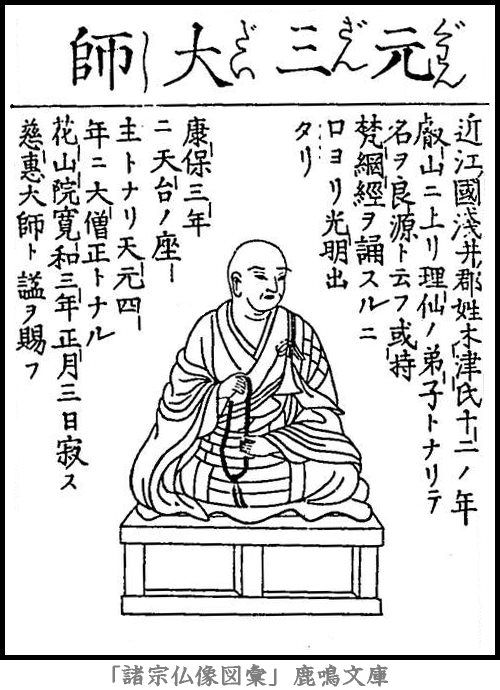 元三大師
ぐわんざんだいし
近江國淺井郡姓木津氏十二ノ年
叡山ニ上リ理仙ノ弟子トナリテ
名ヲ良源ト云フ或持
梵網經ヲ誦スルニ
口ヨリ光明出
タリ
康保三年
ニ天台ノ座
主トナリ天元四
年ニ大僧正トナル
花山院寛和三年正月三日寂ス
慈惠大師ト謚ヲ賜フ
「諸宗仏像図彙」鹿鳴文庫